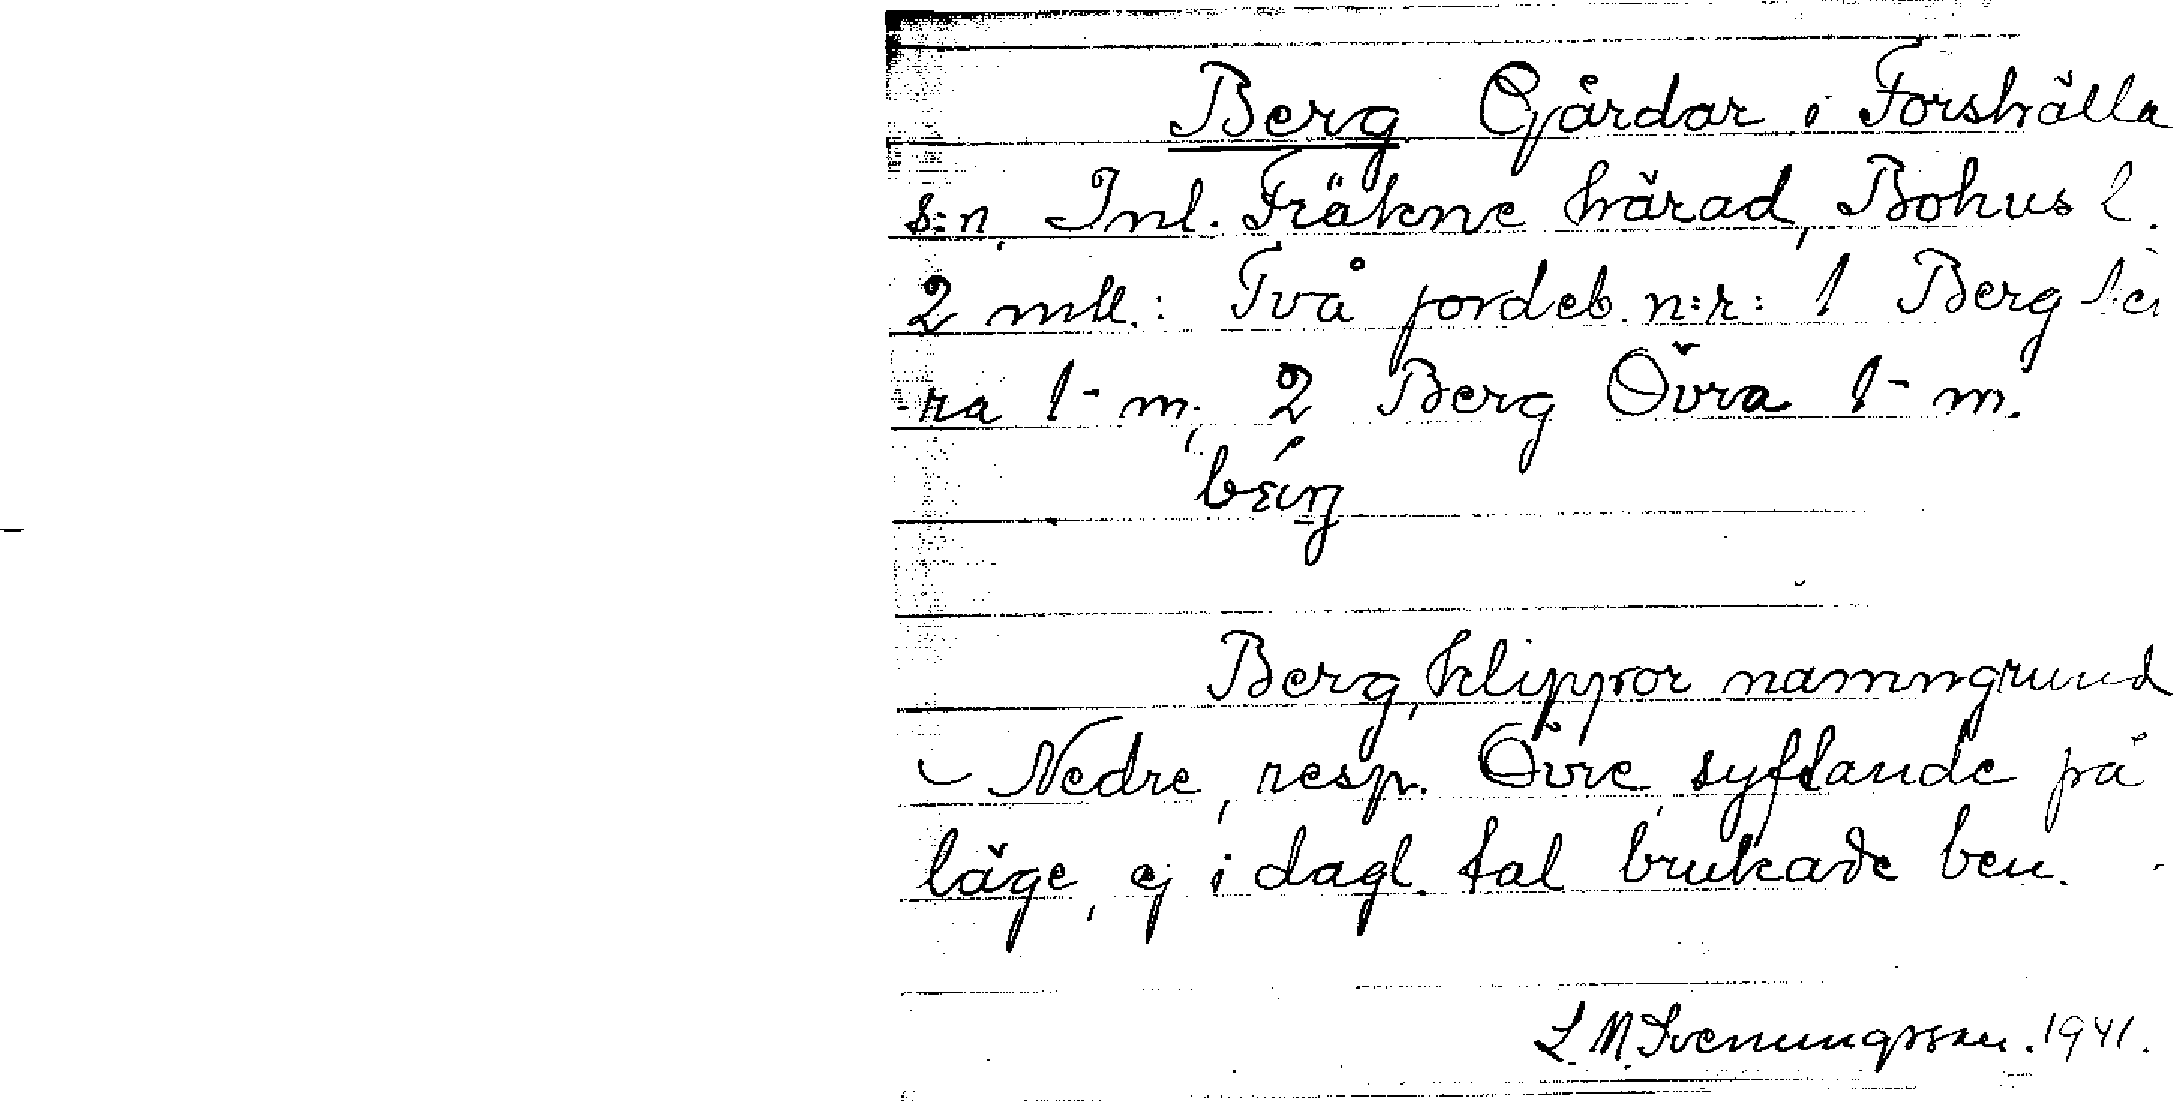 Berg Gårdar i Forshälla
s:n, Inl. Fräkne härad, Bohus l.
2 mtl.: Två jordeb. n:r: 1 Berg
ra 1- m; 2 Berg Övra 1- m.
Berg, klippor namngrund
Nedre, resp. Övre, syftande på
läge, ej i dagl. tal brukade ben.
L M Svenungsson. 1941.